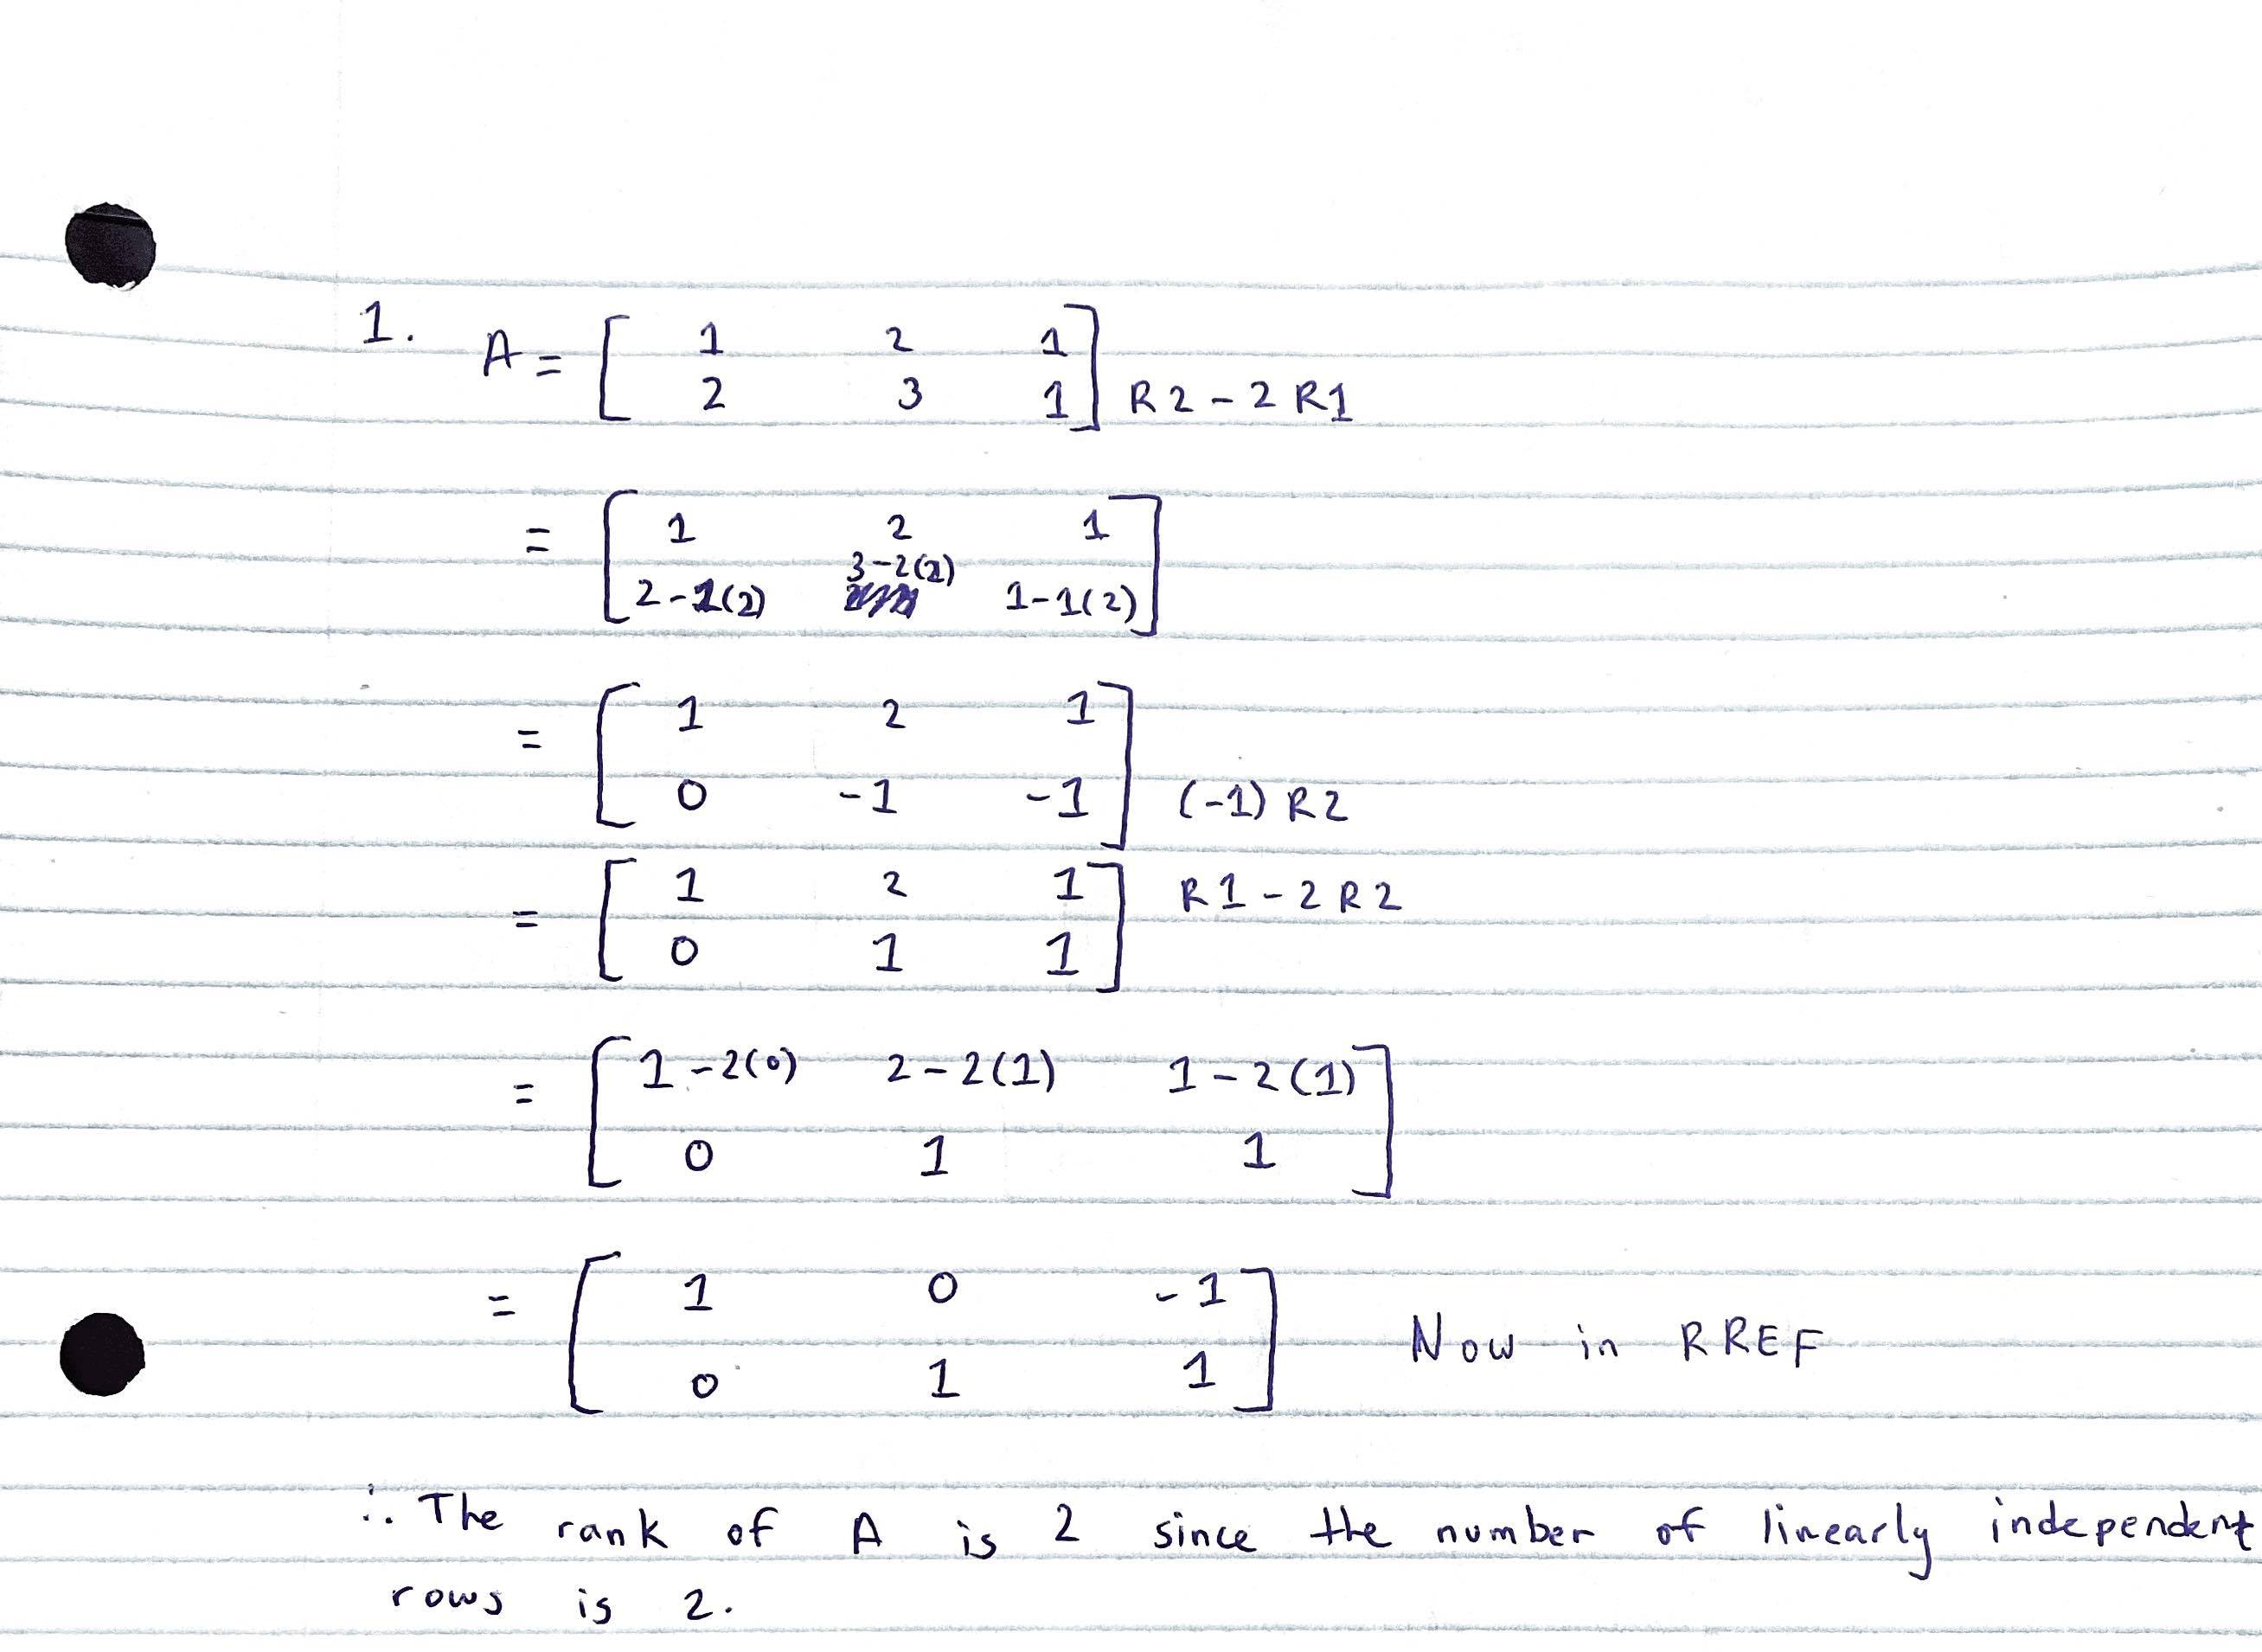 1. A = [ 1 2 1
2 3 1 ] R2 - 2 R1
= [ 1 2 1
2-1(2) 3-2(2) 1-1(2) ]
= [ 1 2 1
0 -1 -1 ] (-1) R2
= [ 1 2 1 ] R1 - 2 R2
0 1 1
= [ 1-2(0) 2-2(1) 1-2(1) ]
0 1 1
= [ 1 0 -1 ]
Now in RREF
0 1 1
∴ The rank of A is 2 since the number of linearly independent
rows is 2.